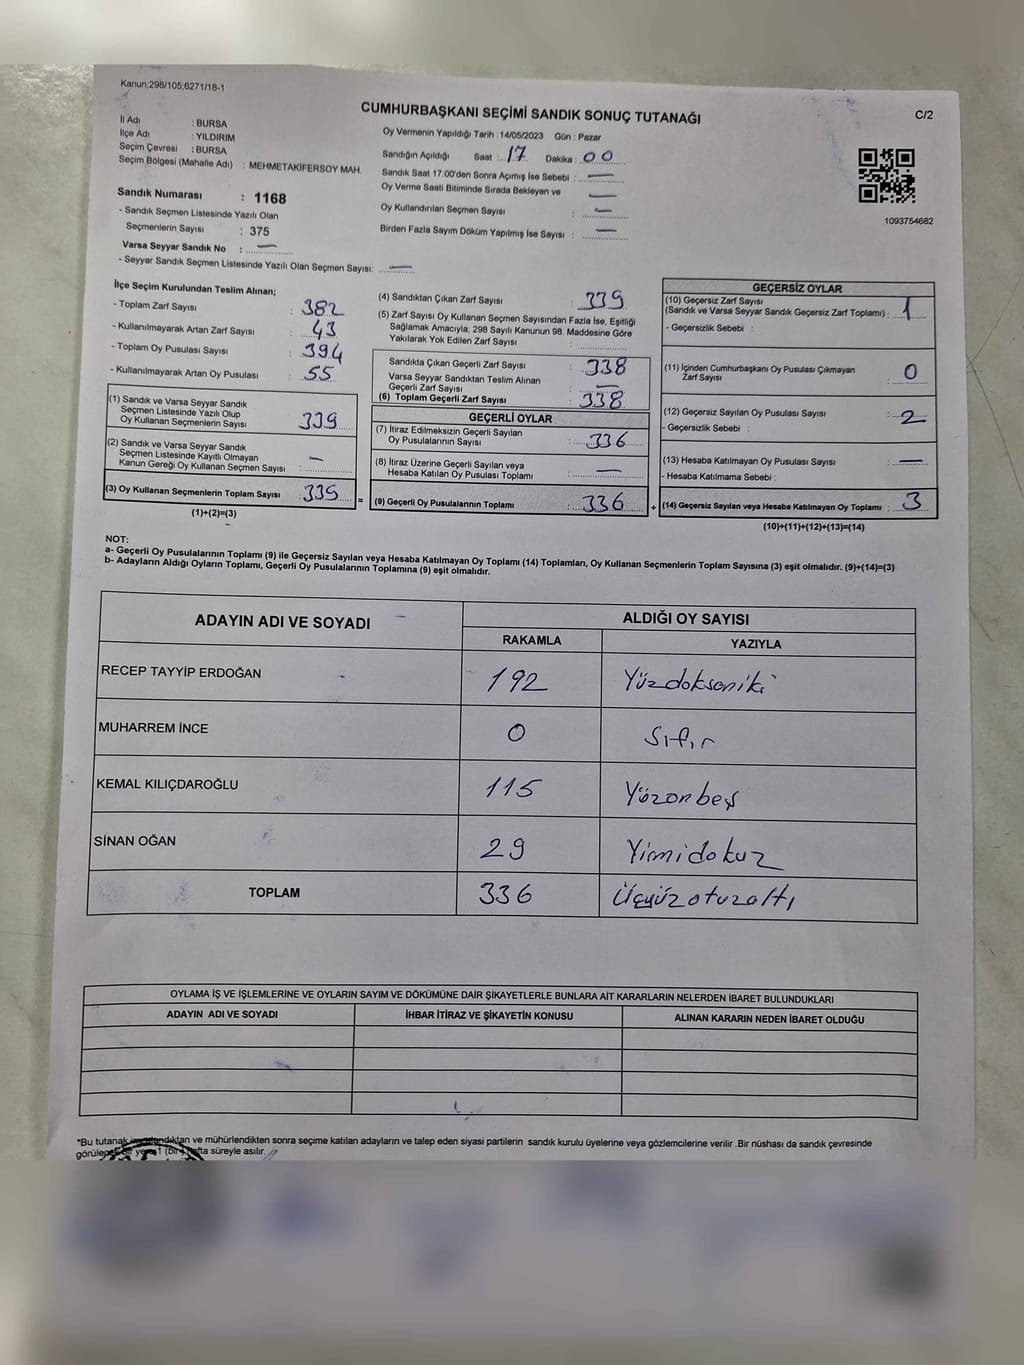 Kanun;298/105;6271/18-1
CUMHURBAŞKANI SEÇİMİ SANDIK SONUÇ TUTANAĞI
C/2
İl Adı : BURSA
İlçe Adı : YILDIRIM
Seçim Çevresi : BURSA
Seçim Bölgesi (Mahalle Adı) : MEHMETAKİFERSOY MAH.
Sandık Numarası : 1168
- Sandık Seçmen Listesinde Yazılı Olan
Seçmenlerin Sayısı : 375
Varsa Seyyar Sandık No : —
- Seyyar Sandık Seçmen Listesinde Yazılı Olan Seçmen Sayısı: —
Oy Vermenin Yapıldığı Tarih : 14/05/2023 Gün : Pazar
Sandığın Açıldığı Saat : 17 Dakika : 00
Sandık Saat 17:00'den Sonra Açımış İse Sebebi : —
Oy Verme Saati Bitiminde Sırada Bekleyen ve —
Oy Kullandırılan Seçmen Sayısı : —
Birden Fazla Sayım Döküm Yapılmış İse Sayısı : —
1093754682
İlçe Seçim Kurulundan Teslim Alınan;
- Toplam Zarf Sayısı : 382
- Kullanılmayarak Artan Zarf Sayısı : 43
- Toplam Oy Pusulası Sayısı : 394
- Kullanılmayarak Artan Oy Pusulası : 55
(1) Sandık ve Varsa Seyyar Sandık
Seçmen Listesinde Yazılı Olup
Oy Kullanan Seçmenlerin Sayısı : 339
(2) Sandık ve Varsa Seyyar Sandık
Seçmen Listesinde Kayıtlı Olmayan
Kanun Gereği Oy Kullanan Seçmen Sayısı : —
(3) Oy Kullanan Seçmenlerin Toplam Sayısı : 339 =
(1)+(2)=(3)
(4) Sandıktan Çıkan Zarf Sayısı : 339
(5) Zarf Sayısı Oy Kullanan Seçmen Sayısından Fazla İse, Eşitliği
Sağlamak Amacıyla; 298 Sayılı Kanunun 98. Maddesine Göre
Yakılarak Yok Edilen Zarf Sayısı :
Sandıkta Çıkan Geçerli Zarf Sayısı : 338
Varsa Seyyar Sandıktan Teslim Alınan
Geçerli Zarf Sayısı : —
(6) Toplam Geçerli Zarf Sayısı : 338
GEÇERLİ OYLAR
(7) İtiraz Edilmeksizin Geçerli Sayılan
Oy Pusulalarının Sayısı : 336
(8) İtiraz Üzerine Geçerli Sayılan veya
Hesaba Katılan Oy Pusulası Toplamı : —
(9) Geçerli Oy Pusulalarının Toplamı : 336 +
GEÇERSİZ OYLAR
(10) Geçersiz Zarf Sayısı
(Sandık ve Varsa Seyyar Sandık Geçersiz Zarf Toplamı) : 1
- Geçersizlik Sebebi :
(11) İçinden Cumhurbaşkanı Oy Pusulası Çıkmayan
Zarf Sayısı : 0
(12) Geçersiz Sayılan Oy Pusulası Sayısı : 2
- Geçersizlik Sebebi :
(13) Hesaba Katılmayan Oy Pusulası Sayısı : —
- Hesaba Katılmama Sebebi :
(14) Geçersiz Sayılan veya Hesaba Katılmayan Oy Toplamı : 3
(10)+(11)+(12)+(13)=(14)
NOT:
a- Geçerli Oy Pusulalarının Toplamı (9) ile Geçersiz Sayılan veya Hesaba Katılmayan Oy Toplamı (14) Toplamları, Oy Kullanan Seçmenlerin Toplam Sayısına (3) eşit olmalıdır. (9)+(14)=(3)
b- Adayların Aldığı Oyların Toplamı, Geçerli Oy Pusulalarının Toplamına (9) eşit olmalıdır.
ADAYIN ADI VE SOYADI ALDIĞI OY SAYISI
RAKAMLA YAZIYLA
RECEP TAYYİP ERDOĞAN 192 Yüzdoksaniki
MUHARREM İNCE 0 Sıfır
KEMAL KILIÇDAROĞLU 115 Yüzonbeş
SİNAN OĞAN 29 Yirmidokuz
TOPLAM 336 Üçyüzotuzaltı
OYLAMA İŞ VE İŞLEMLERİNE VE OYLARIN SAYIM VE DÖKÜMÜNE DAİR ŞİKAYETLERLE BUNLARA AİT KARARLARIN NELERDEN İBARET BULUNDUKLARI
ADAYIN ADI VE SOYADI İHBAR İTİRAZ VE ŞİKAYETİN KONUSU ALINAN KARARIN NEDEN İBARET OLDUĞU
*Bu tutanak imzalandıktan ve mühürlendikten sonra seçime katılan adayların ve talep eden siyasi partilerin sandık kurulu üyelerine veya gözlemcilerine verilir .Bir nüshası da sandık çevresinde
görülecek bir yere 1 (bir) hafta süreyle asılır.